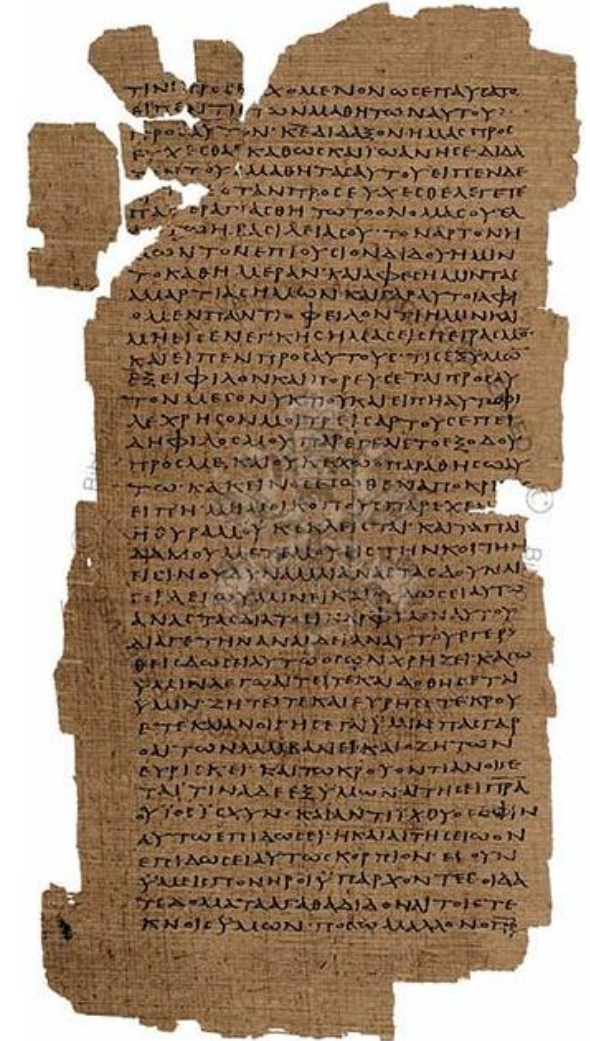 ΤΙΝΙ ΠΡΟϹΕ ΧΟΜΕΝΟΝΩϹΕΠΑΥϹΑΤΟ
ΕΙΠΕΝΤΙ ΤΩΝΜΑΘΗΤΩΝΑΥΤΟΥ·
ΠΡΟϹΑΥΤΟΝ·ΚΕΔΙΔΑΞΟΝΗΜΑϹΠΡΟϹ
Ε ΧΕϹΘΑΙ ΚΑΘΩϹΚΑΙΙΩΑΝΗϹΕΔΙΔΑ
ΤΟΥ ΜΑΘΗΤΑϹΑΥΤΟΥΕΙΠΕΝΔΕ
ΟΤΑΝΠΡΟϹΕΥΧΕϹΘΕΛΕΓΕΤΕ
ΠΑΤΕΡΑΓΙΑϹΘΗΤΩΤΟΟΝΟΜΑϹΟΥΕΛ
ΤΩΗΒΑϹΙΛΕΙΑϹΟΥ·ΤΟΝΑΡΤΟΝΗ
ΜΩΝΤΟΝΕΠΙΟΥϹΙΟΝΔΙΔΟΥΗΜΙΝ
ΤΟΚΑΘΗΜΕΡΑΝ·ΚΑΙΑΦΕϹΗΜΙΝΤΑϹ
ΑΜΑΡΤΙΑϹΗΜΩΝΚΑΙΓΑΡΑΥΤΟΙΑΦΙ
ΟΜΕΝΠΑΝΤΙΟΦΕΙΛΟΝΤΙΗΜΙΝΚΑΙ
ΜΗΕΙϹΕΝΕΓΚΗϹΗΜΑϹΕΙϹΠΕΙΡΑϹΜΟ
ΚΑΙΕΙΠΕΝΠΡΟϹΑΥΤΟΥϹ·ΤΙϹΕΞΥΜΩ
ΕΞΕΙΦΙΛΟΝΚΑΙΠΟΡΕΥϹΕΤΑΙΠΡΟϹΑΥ
ΤΟΝΜΕϹΟΝΥΚΤΙΟΥΚΑΙΕΙΠΗΑΥΤΩΦΙ
ΛΕΧΡΗϹΟΝΜΟΙΤΡΕΙϹΑΡΤΟΥϹΕΠΕΙ
ΔΗΦΙΛΟϹΜΟΥΠΑΡΕΓΕΝΕΤΟΕΞΟΔΟΥ
ΠΡΟϹΜΕ·ΚΑΙΟΥΚΕΧΩΟΠΑΡΑΘΗϹΩΑΥ
ΤΩ·ΚΑΚΕΙΝΟϹΕϹΩΘΕΝΑΠΟΚΡΙ
ΕΙΠΗΜΗΜΟΙΚΟΠΟΥϹΠΑΡΕΧΕ
ΗΘΥΡΑΜΟΥΚΕΚΛΕΙϹΤΑΙΚΑΙΤΑΠΑΙ
ΔΙΑΜΟΥΜΕΤΕΜΟΥΕΙϹΤΗΝΚΟΙΤΗΝ
ΕΙϹΙΝΟΥΔΥΝΑΜΑΙΑΝΑϹΤΑϹΔΟΥΝΑΙ
ϹΟΙΛΕΓΩΥΜΙΝΕΙΚΑΙΟΥΔΩϹΕΙΑΥΤΩ
ΑΝΑϹΤΑϹΔΙΑΤΟΕΙΝΑΙΦΙΛΟΝΑΥΤΟΥ
ΔΙΑΓΕΤΗΝΑΝΑΙΔΕΙΑΝΑΥΤΟΥΕΓΕΡ
ΘΕΙϹΔΩϹΕΙΑΥΤΩΟϹΩΝΧΡΗΖΕΙ·ΚΑΓΩ
ΥΜΙΝΛΕΓΩΑΙΤΕΙΤΕΚΑΙΔΟΘΗϹΕΤΑΙ
ΥΜΙΝ·ΖΗΤΕΙΤΕΚΑΙΕΥΡΗϹΕΤΕΚΡΟΥ
ΕΤΕΚΑΙΑΝΟΙΓΗϹΕΤΑΙΥΜΙΝΠΑϹΓΑΡ
ΟΑΙΤΩΝΛΑΜΒΑΝΕΙ·ΚΑΙΟΖΗΤΩΝ
ΕΥΡΙϹΚΕΙ·ΚΑΙΤΩΚΡΟΥΟΝΤΙΑΝΟΙΓΕ
ΤΑΙΤΙΝΑΔΕΕΞΥΜΩΝΑΙΤΗϹΕΙΠΡΑ
ΟΥΙΟϹΙΧΘΥΝ·ΚΑΙΑΝΤΙΙΧΘΥΟϹΟΦΙΝ
ΑΥΤΩΕΠΙΔΩϹΕΙ·ΗΚΑΙΑΙΤΗϹΕΙΩΟΝ
ΕΠΙΔΩϹΕΙΑΥΤΩϹΚΟΡΠΙΟΝ·ΕΙΟΥΝ
ΥΜΕΙϹΠΟΝΗΡΟΙΥΠΑΡΧΟΝΤΕϹΟΙΔΑ
ΤΕΔΟΜΑΤΑΑΓΑΘΑΔΙΔΟΝΑΙΤΟΙϹΤΕ
ΚΝΟΙϹΥΜΩΝ·ΠΟϹΩΜΑΛΛΟΝΟΠΗΡ